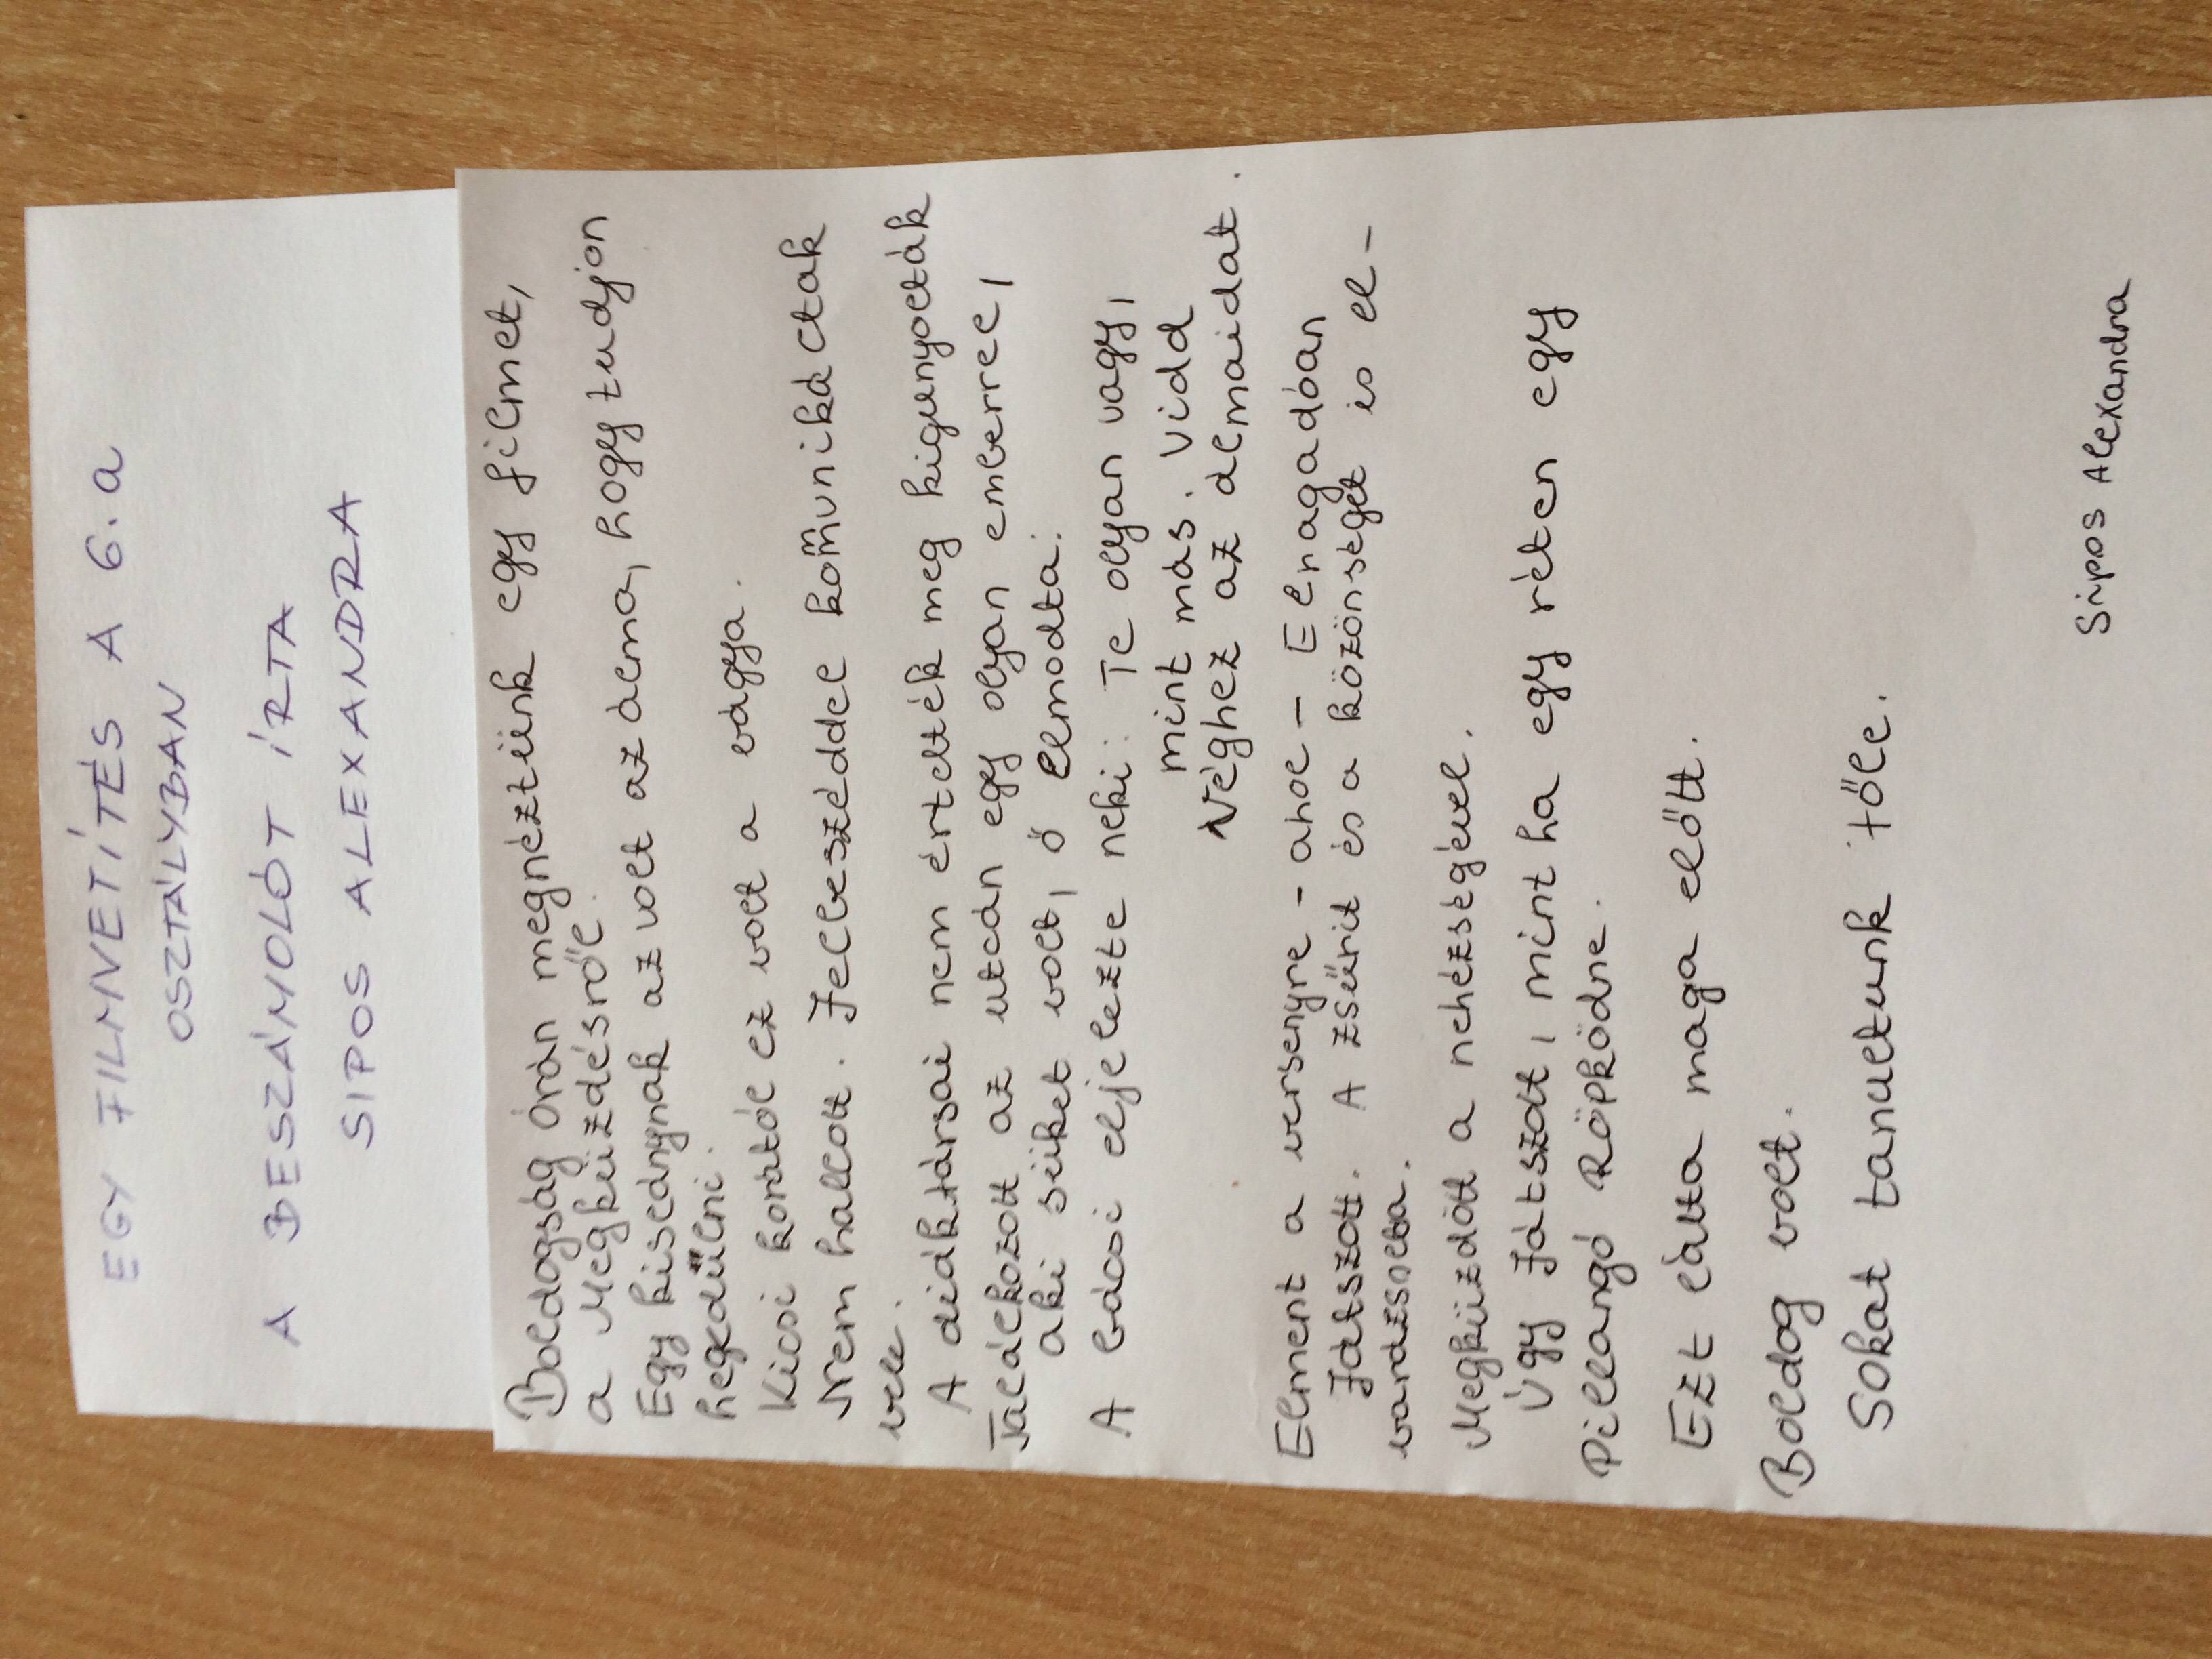 EGY FILMVETÍTÉS A 6.a
OSZTÁLYBAN
A BESZÁMOLÓT ÍRTA
SIPOS ALEXANDRA
Boldogság órán megnéztünk egy filmet,
a Megküzdésről.
Egy kislánynak az volt az álma, hogy tudjon
hegedülni.
Kicsi korától ez volt a vágya.
Nem hallott. Jelbeszéddel kommunikáltak
vele.
A diáktársai nem értették meg kigunyolták
Találkozott az utcán egy olyan emberrel,
aki süket volt, ő elmodta:
A bácsi eljelezte neki: Te olyan vagy,
mint más. Vidd
Véghez az álmaidat.
Elment a versenyre - ahol - Elragadóan
Játszott. A zsűrit és a közönséget is el-
varázsolta.
Megküzdött a nehézségével.
Úgy Játszott, mint ha egy réten egy
Pillangó Röpködne.
Ezt látta maga előtt.
Boldog volt.
Sokat tanultunk tőle.
Sipos Alexandra